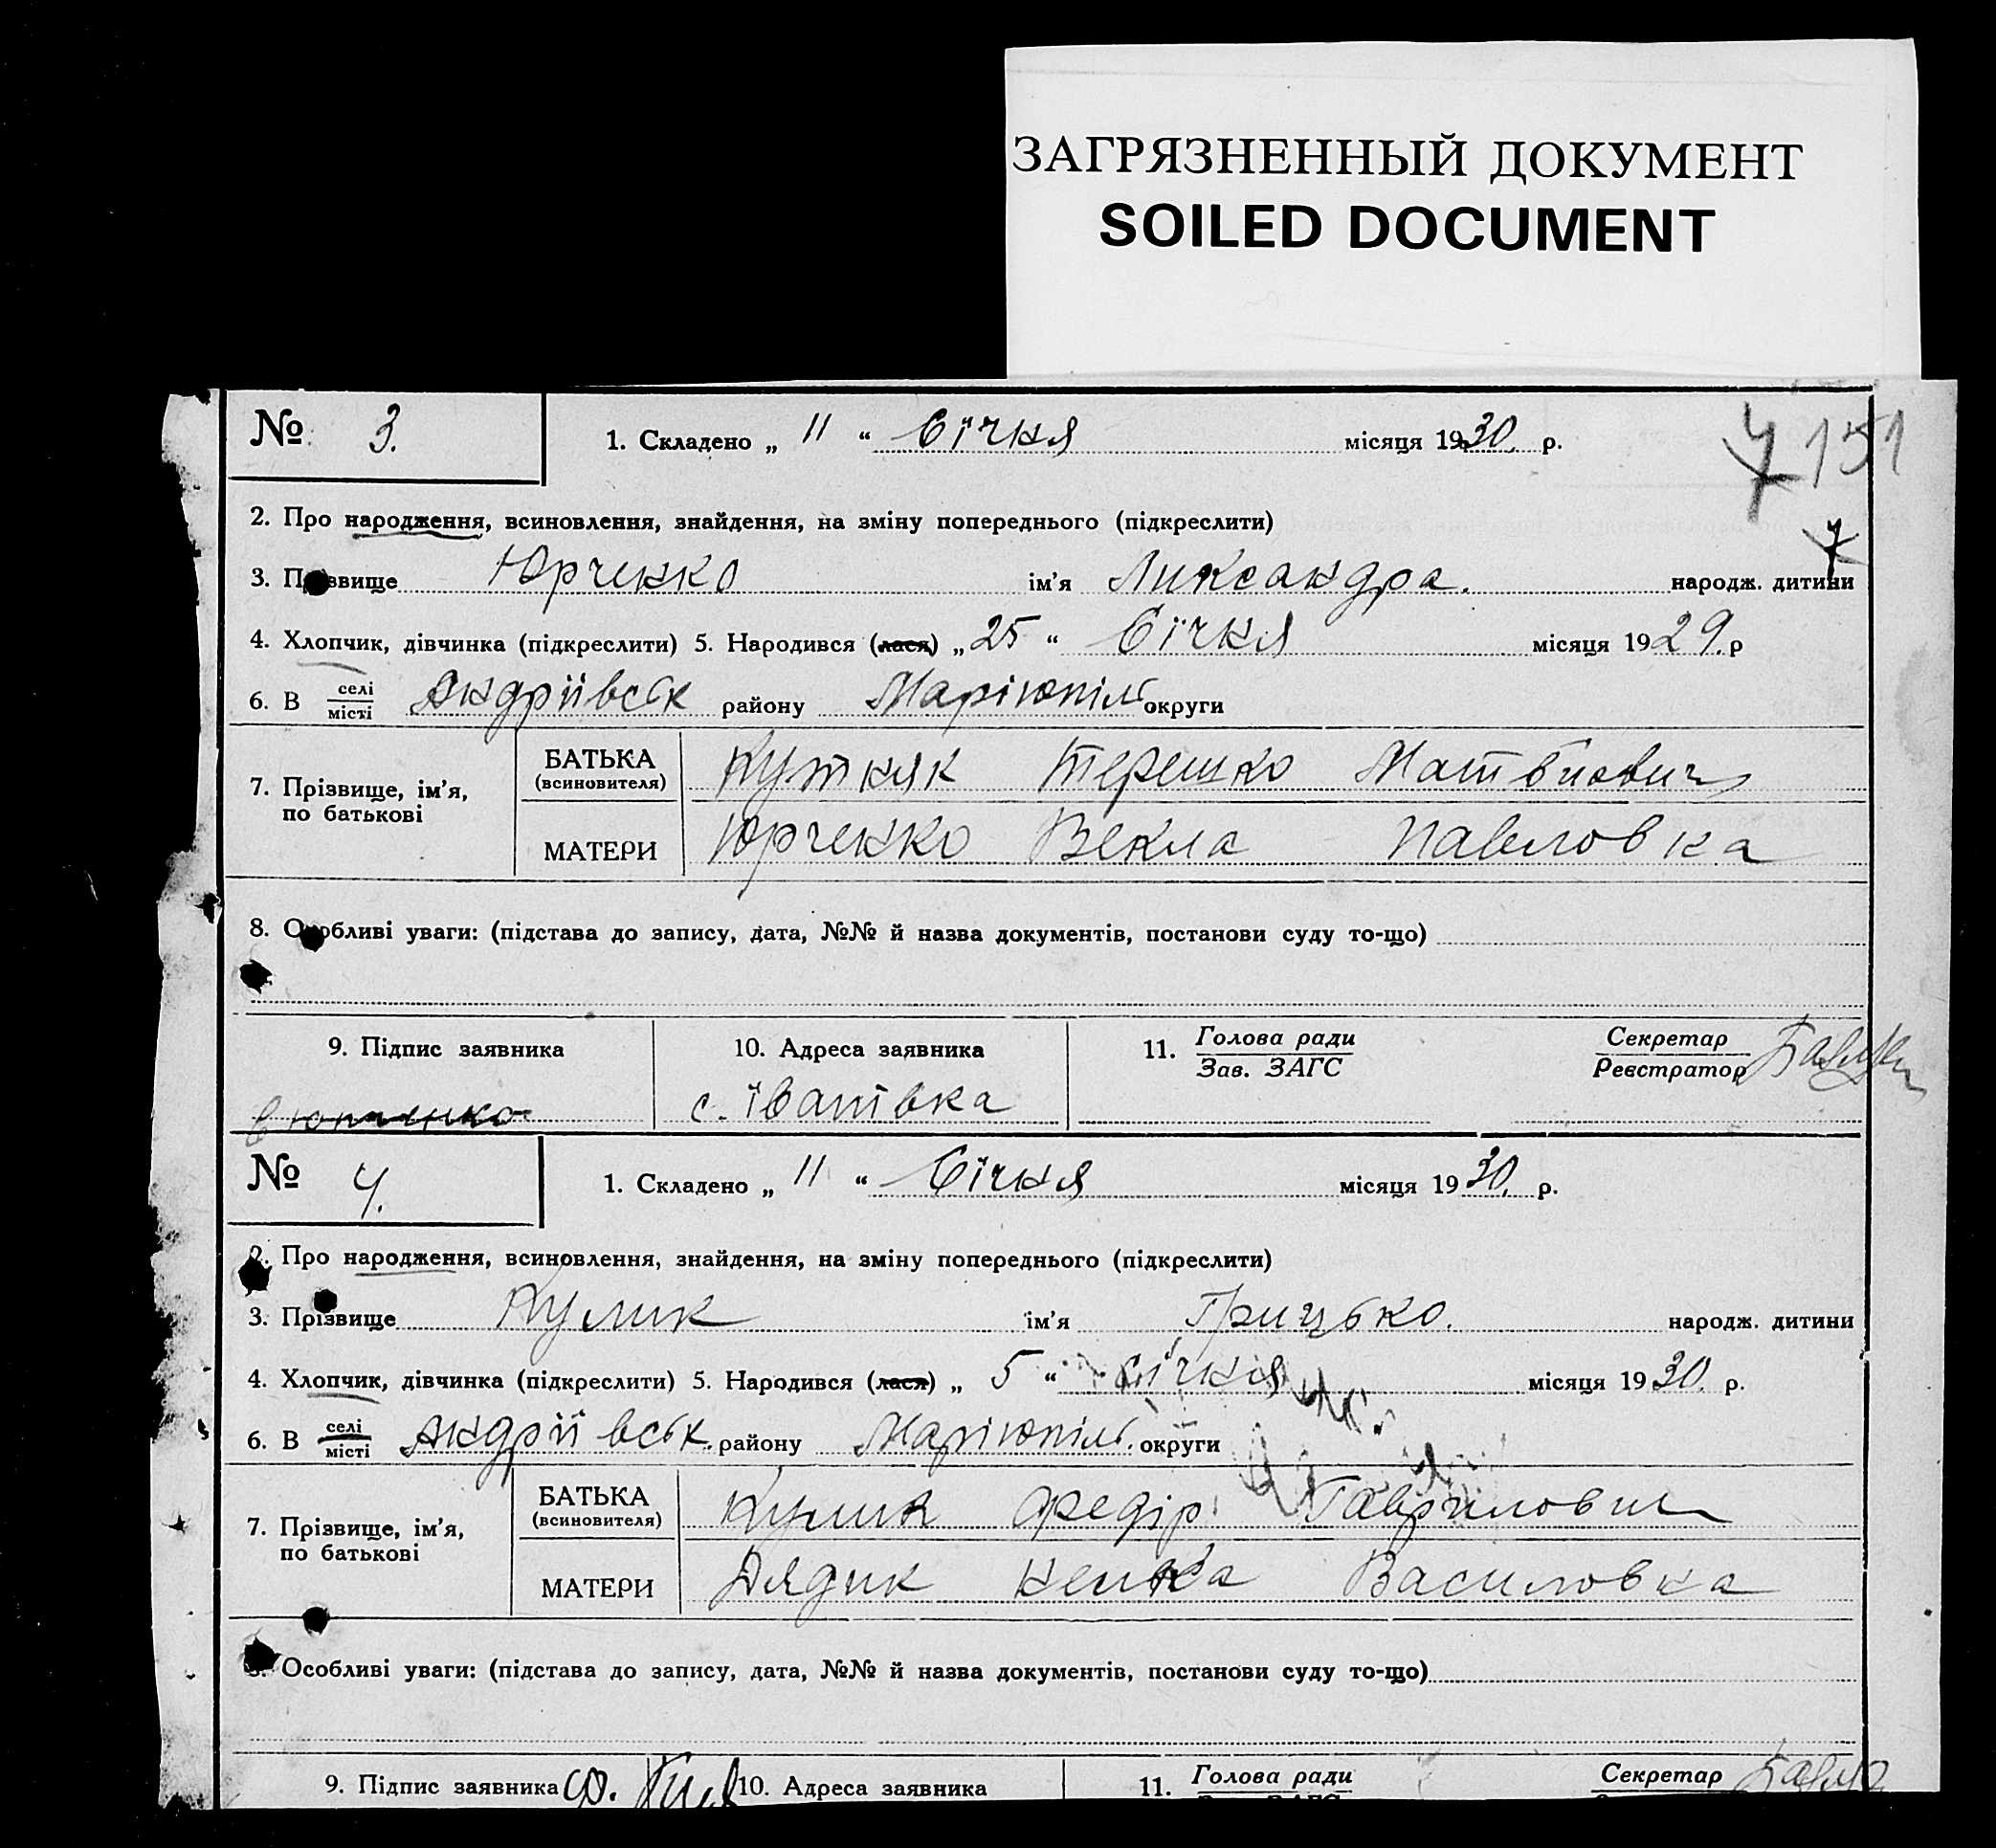 ЗАГРЯЗНЕННЫЙ ДОКУМЕНТ
SOILED DOCUMENT
№ 3. 1. Складено „ 11 “ Січня місяця 1930. р.
7 151
2. Про народження, всиновлення, знайдення, на зміну попереднього (підкреслити)
7
3. Прізвище Юрченко ім'я Ликсандра. народж. дитини
4. Хлопчик, дівчинка (підкреслити) 5. Народився (лася) „ 25 “ Січня місяця 1929. р
6. В селі/місті Андріївськ району Маріюпіль округи
7. Прізвище, ім'я, по батькові
БАТЬКА (всиновителя) Кутняк Терешко Матвиович
МАТЕРИ Юрченко Векла Павловна
8. Особливі уваги: (підстава до запису, дата, №№ й назва документів, постанови суду то-що)
9. Підпис заявника 10. Адреса заявника 11. Голова ради / Зав. ЗАГС Секретар / Реєстратор
с. Іватівка
№ 4. 1. Складено „ 11 “ Січня місяця 1930. р.
2. Про народження, всиновлення, знайдення, на зміну попереднього (підкреслити)
3. Прізвище Кулик ім'я Грицько. народж. дитини
4. Хлопчик, дівчинка (підкреслити) 5. Народився (лася) „ 5 “ січня місяця 1930. р.
6. В селі/місті Андріївськ. району Маріюпіль. округи
7. Прізвище, ім'я, по батькові
БАТЬКА (всиновителя) Кулик Федір Гаврилович
МАТЕРИ Дядик Василовна
8. Особливі уваги: (підстава до запису, дата, №№ й назва документів, постанови суду то-що)
9. Підпис заявника 10. Адреса заявника 11. Голова ради Секретар